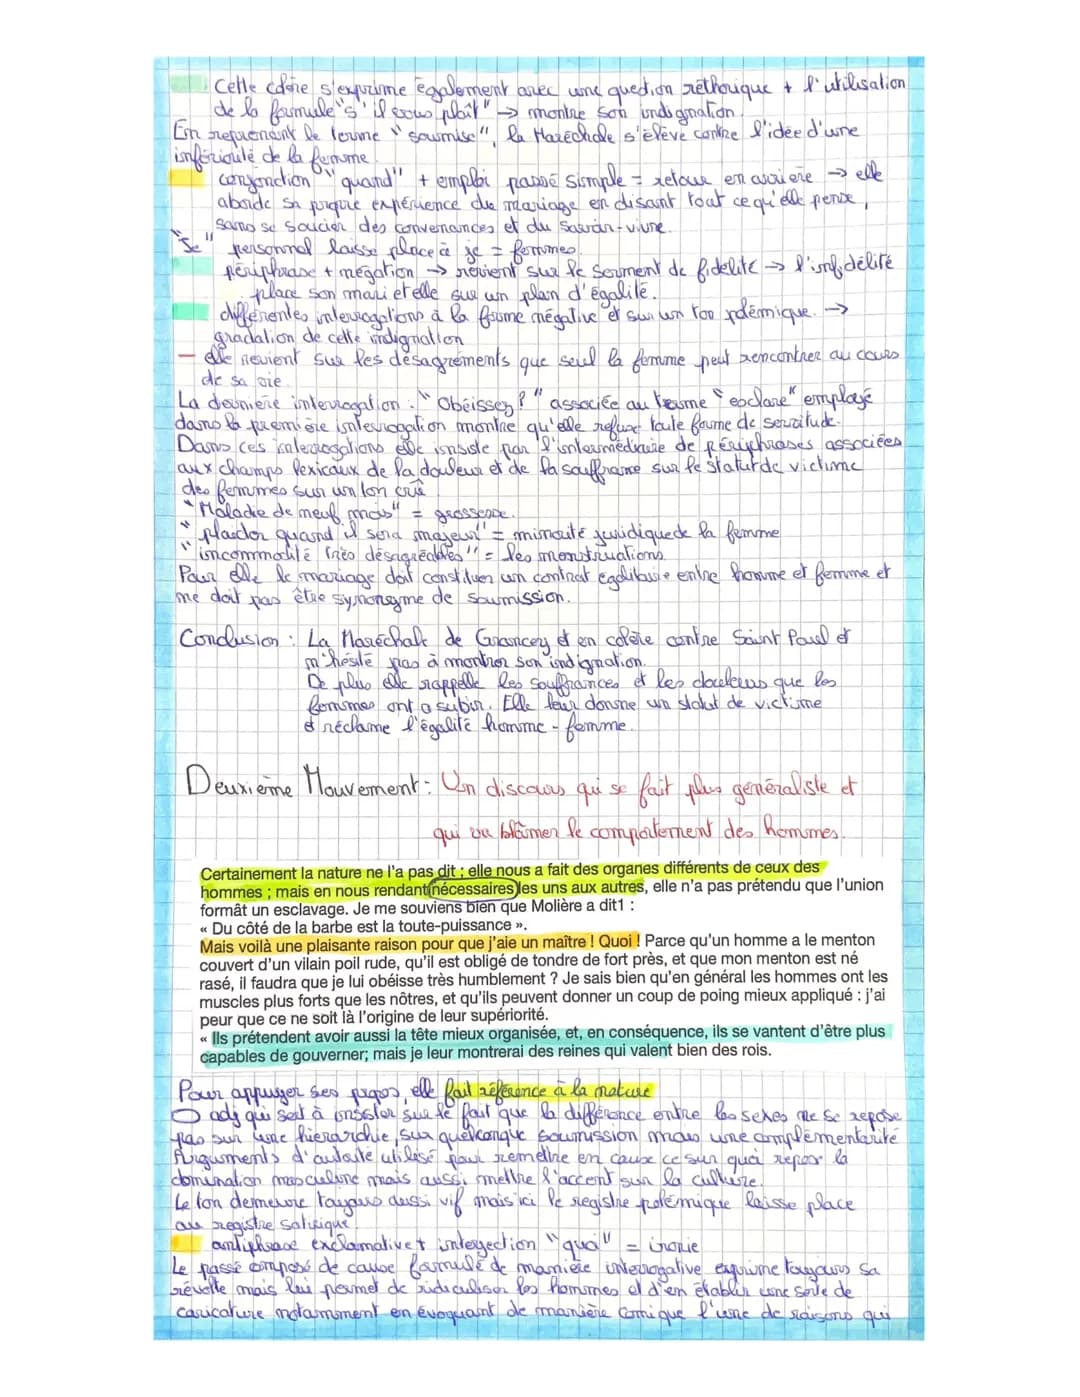 Cette colère s'exprime également avec une question réthorique + l'utilisation
de la formule "s'il vous plaît" → montre son indignation.
En reprenant le terme "soumise", la Maréchale s'élève contre l'idée d'une
infériorité de la femme.
conjonction "quand" + emploi passé simple = retour en arrière → elle
aborde sa propre expérience du mariage en disant tout ce qu'elle pense,
sans se soucier des convenances et du savoir-vivre.
"Je" personnel laisse place à je = femmes.
périphrase + négation → revient sur le serment de fidélité → l'infidélité
place son mari et elle sur un plan d'égalité.
différentes interrogations à la forme négative et sur un ton polémique. →
gradation de cette indignation
— elle revient sur les désagréments que seul la femme peut rencontrer au cours
de sa vie.
La dernière interrogation : "Obéissez ?" associée au terme "esclave" employé
dans la première interrogation montre qu'elle refuse toute forme de servitude.
Dans ces interrogations elle insiste par l'intermédiaire de périphrases associées
aux champs lexicaux de la douleur et de la souffrance sur le statut de victime
des femmes sur un ton crû
"Maladie de neuf mois" = grossesse.
"plaider quand il sera majeur" = minorité juridique de la femme
"incommodité très désagréables" = les menstruations.
Pour elle le mariage doit constituer un contrat égalitaire entre homme et femme et
ne doit pas être synonyme de soumission.
Conclusion : La Maréchale de Grancey et en colère contre Saint Paul et
n'hésite pas à montrer son indignation.
De plus elle rappelle les souffrances et les douleurs que les
femmes ont a subir. Elle leur donne un statut de victime
et réclame l'égalité homme - femme.
Deuxième Mouvement : Un discours qui se fait plus généraliste et
qui va blâmer le comportement des hommes.
Certainement la nature ne l'a pas dit ; elle nous a fait des organes différents de ceux des
hommes ; mais en nous rendant nécessaires les uns aux autres, elle n'a pas prétendu que l'union
formât un esclavage. Je me souviens bien que Molière a dit1 :
« Du côté de la barbe est la toute-puissance ».
Mais voilà une plaisante raison pour que j'aie un maître ! Quoi ! Parce qu'un homme a le menton
couvert d'un vilain poil rude, qu'il est obligé de tondre de fort près, et que mon menton est né
rasé, il faudra que je lui obéisse très humblement ? Je sais bien qu'en général les hommes ont les
muscles plus forts que les nôtres, et qu'ils peuvent donner un coup de poing mieux appliqué : j'ai
peur que ce ne soit là l'origine de leur supériorité.
« Ils prétendent avoir aussi la tête mieux organisée, et, en conséquence, ils se vantent d'être plus
capables de gouverner; mais je leur montrerai des reines qui valent bien des rois.
Pour appuyer ses propos, elle fait référence à la nature
adj qui sert à insister sur le fait que la différence entre les sexes ne se repose
pas sur une hierarchie, sur quelconque soumission mais une complémentarité
Arguments d'autorité utilisé pour remettre en cause ce sur quoi repose la
domination masculine mais aussi mettre l'accent sur la culture.
Le ton demeure toujours aussi vif mais ici le registre polémique laisse place
au registre satirique.
antiphrase exclamative + interjection "quoi" = ironie
Le passé composé de cause formulé de manière interrogative exprime toujours sa
révolte mais lui permet de ridiculiser les hommes et d'en établir une sorte de
caricature notamment en évoquant de manière comique l'une de raisons qui